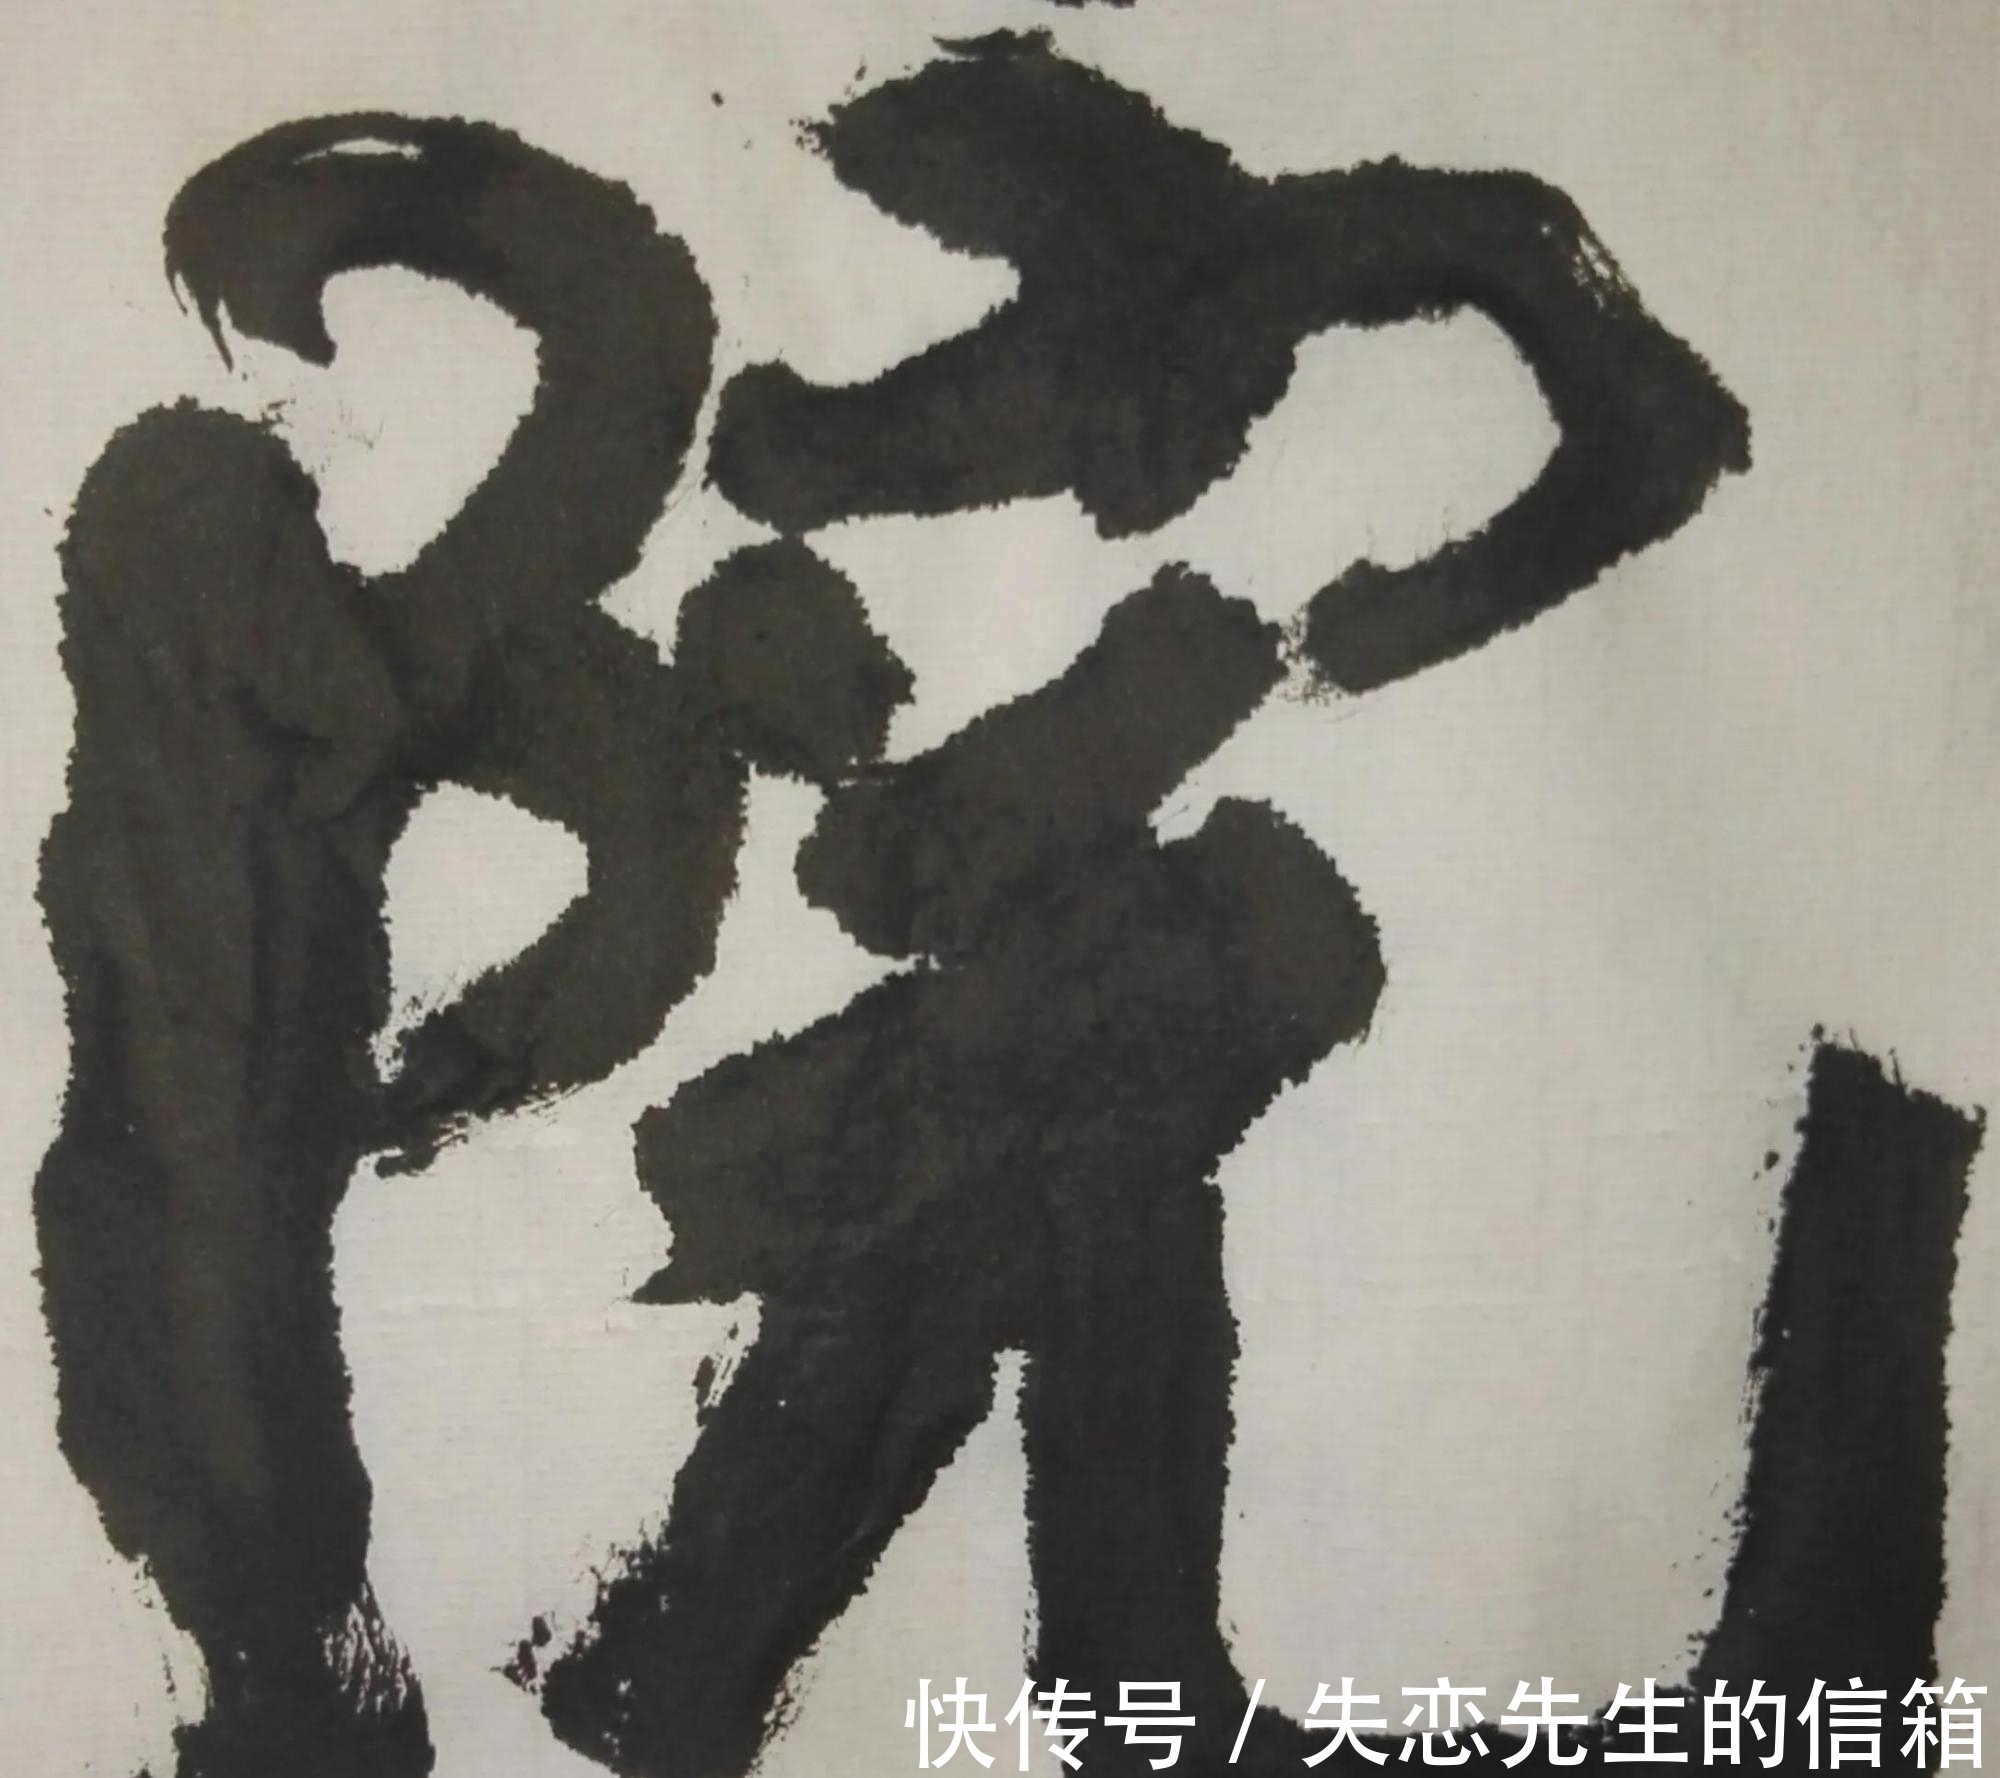 院
快传号 / 失恋先生的信箱